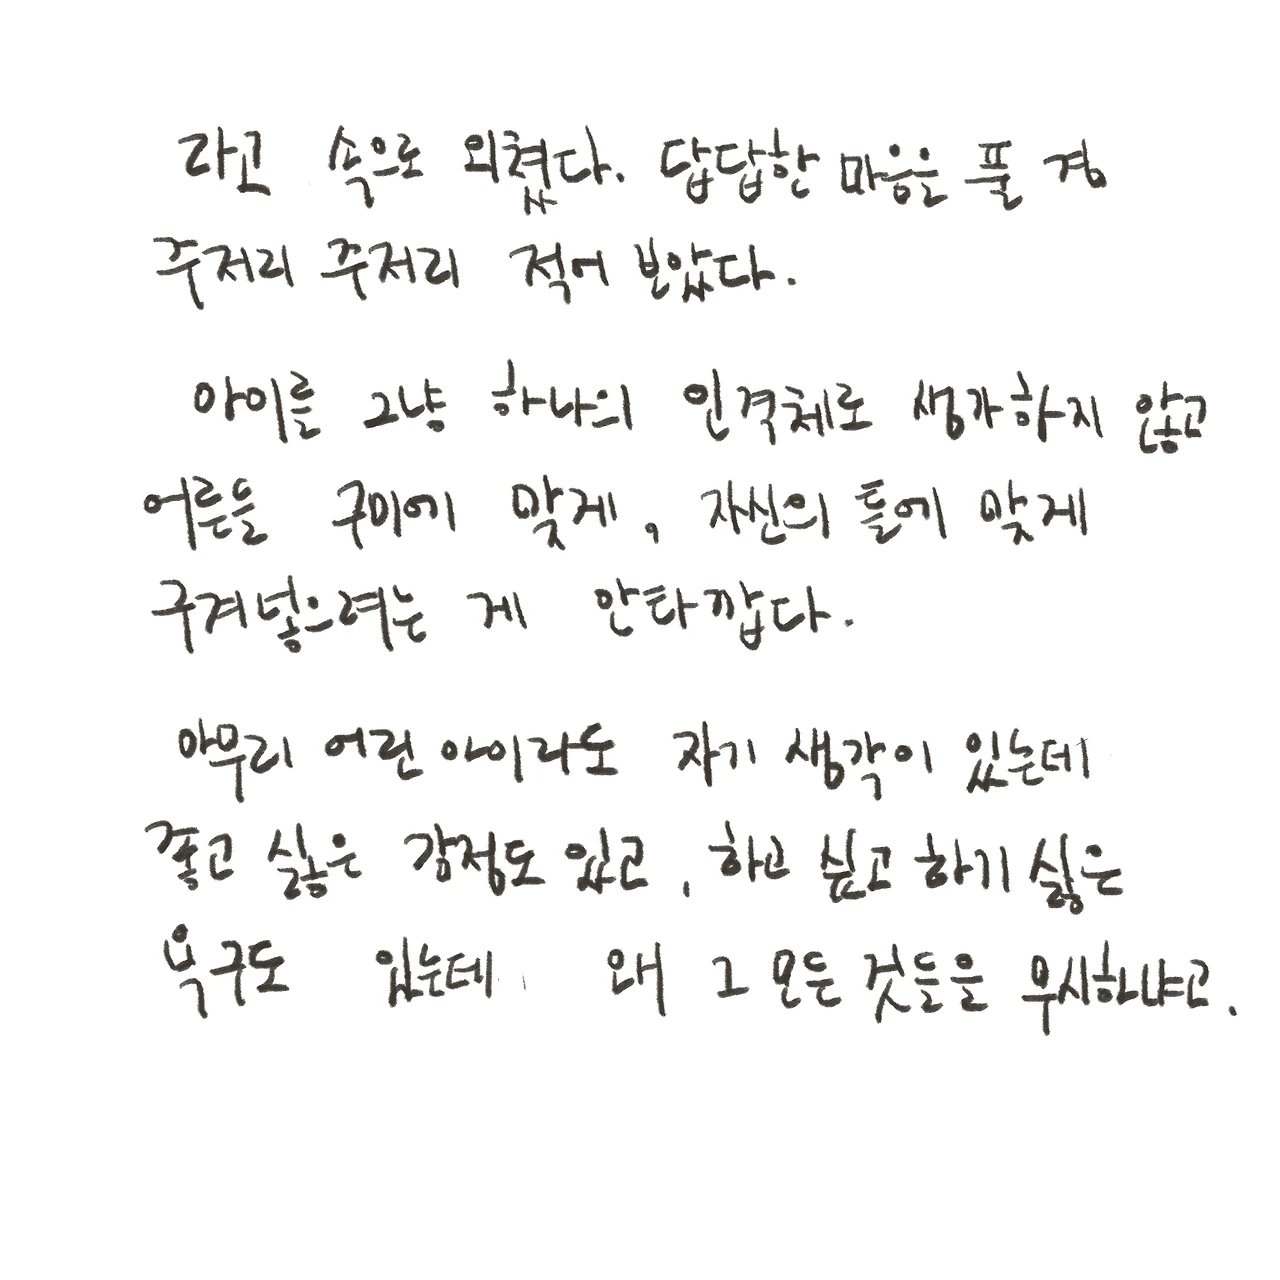 라고 속으로 외쳤다. 답답한 마음을 풀 겸
주저리 주저리 적어 보았다.
아이를 그냥 하나의 인격체로 생각하지 않고
어른들 구미에 맞게, 자신의 틀에 맞게
구겨넣으려는 게 안타깝다.
아무리 어린 아이라도 자기 생각이 있는데
좋고 싫은 감정도 있고, 하고 싶고 하기 싫은
욕구도 있는데, 왜 그 모든 것들을 무시하냐고.